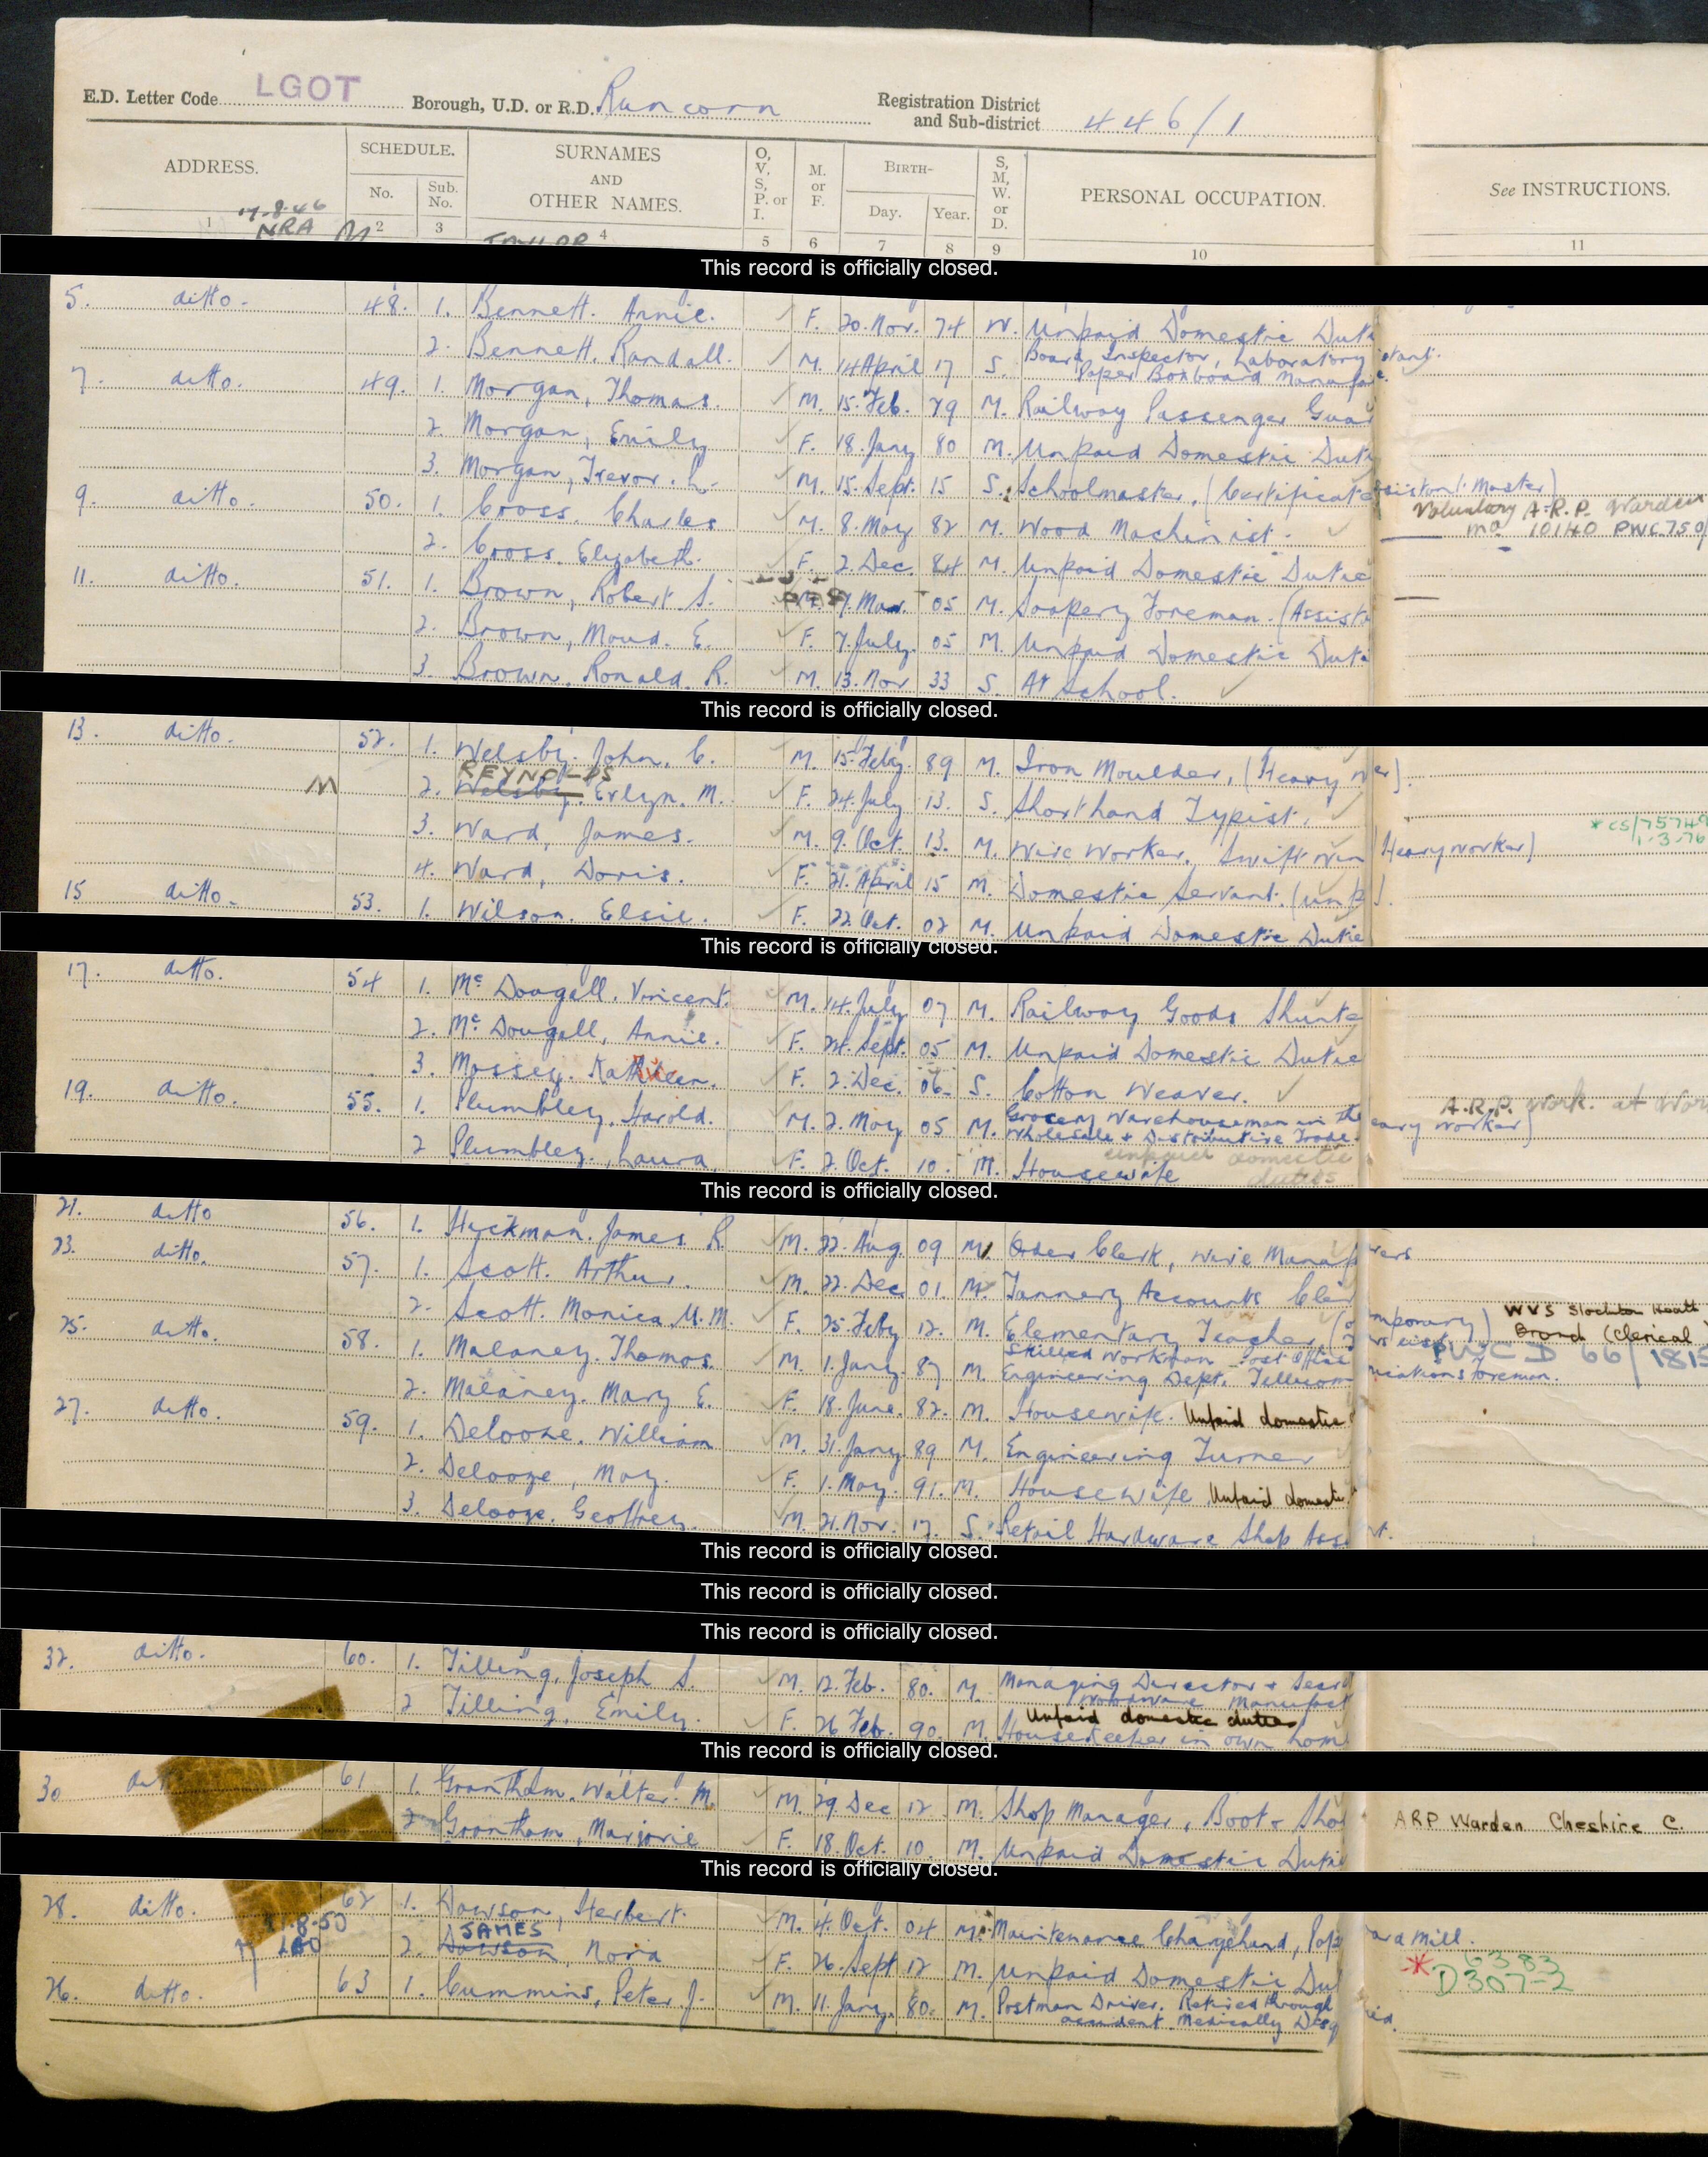 E.D. Letter Code LGOT Borough, U.D. or R.D. Runcorn Registration District and Sub-district 446/1
ADDRESS. SCHEDULE. No. Sub. No. SURNAMES AND OTHER NAMES. O, V, S, P. or I. M. or F. BIRTH- Day. Year. S, M, W. or D. PERSONAL OCCUPATION. See INSTRUCTIONS.
1 2 3 4 5 6 7 8 9 10 11
17-8-46
NRA M
This record is officially closed.
5. ditto. 48. 1. Bennett. Annie. F. 20. Nov. 74 W. Unpaid Domestic Dut
2. Bennett. Randall. M. 14 April 17 S. Board Inspector, Laboratory stant.
Paper Boxboard Manufac
7. ditto. 49. 1. Morgan, Thomas. M. 15. Feb. 79 M. Railway Passenger Guar
2. Morgan, Emily F. 18. Jany 80 M. Unpaid Domestic Dut
3. Morgan, Trevor. L. M. 15. Sept. 15 S. Schoolmaster. (Certificate ssistant Master)
Voluntary A.R.P. Warden
9. ditto. 50. 1. Cross. Charles M. 8. May 82 M. Wood Machinist. 10140 PWC750
2. Cross. Elizabeth. F. 2. Dec. 84 M. Unpaid Domestic Dutie
11. ditto. 51. 1. Brown, Robert S. M. 7. Mar. 05 M. Soapery Foreman. (Assist
2. Brown, Maud. E. F. 7. July. 05 M. Unpaid Domestic Duti
3. Brown. Ronald. R. M. 13. Nov 33 S. At School.
This record is officially closed.
13. ditto. 52. 1. Welsby. John. C. M. 15. Feby. 89 M. Iron Moulder, (Heavy W er).
REYNOLDS
M 2. Welsby. Evlyn. M. F. 24. July 13. S. Shorthand Typist.
3. Ward, James. M. 9. Oct. 13. M. Wire Worker. Heavy worker)
* CS/75749
1.3.76
4. Ward, Doris. F. 21. April 15 M. Domestic Servant. (unp ).
15 ditto. 53. 1. Wilson. Elsie. F. 22. Oct. 02 M. Unpaid Domestic Dutie
This record is officially closed.
17. ditto. 54 1. Mc Dougall. Vincent. M. 14. July 07 M. Railway Goods Shunte
2. Mc Dougall, Annie. F. 24. Sept. 05 M. Unpaid Domestic Dutie
3. Massey. Kathleen. F. 2. Dec. 06. S. Cotton Weaver.
19. ditto. 55. 1. Plumbley. Harold. M. 2. May 05 M. Grocery Warehouseman in the eavy worker)
Wholesale + Distributive Trade.
A.R.P. Work. at Wor
2 Plumbley., Laura. F. 2. Oct. 10. M. Housewife unpaid domestic duties
This record is officially closed.
21. ditto 56. 1. Hickman. James. R. M. 22. Aug. 09 M. Order Clerk, Wire Manuf rers
23. ditto. 57. 1. Scott. Arthur. M. 22. Dec 01. M. Tannery Accounts Cler
2. Scott. Monica U. M. F. 25. Feby 12. M. Elementary Teacher, mporary) WVS Stockton Heath
Brand (Clerical
25. ditto. 58. 1. Malaney. Thomas. M. 1. Jany. 87 M. Skilled Workman Post Office
Engineering Dept. Tellecom nications foreman.
PWCD 66/1815
2. Malaney. Mary E. F. 18. June. 82. M. Housewife. Unpaid domestic
27. ditto. 59. 1. Delooze. William M. 31. Jany. 89 M. Engineering Turner
2. Delooze, May. F. 1. May. 91. M. Housewife. Unpaid domesti
3. Delooze. Geoffrey. M. 21. Nov. 17. S. Retail Hardware Shop Ass t.
This record is officially closed.
This record is officially closed.
This record is officially closed.
32. ditto. 60. 1. Tilling, Joseph S. M. 12. Feb. 80. M. Managing Director + Secr
Woodware Manufact
2 Tilling, Emily. F. 26 Feb. 90. M. Unpaid domestic duties
Housekeeper in own hom
This record is officially closed.
30 61 1. Grantham. Walter. M. M. 29. Dec 12. M. Shop Manager, Boot & Sho ARP Warden Cheshire C.
2 Grantham, Marjorie F. 18. Oct. 10. M. Unpaid Domestic Dutie
This record is officially closed.
28. ditto. 62 1. Dawson, Herbert. M. 4. Oct. 04 M. Maintenance Chargehand, Pap ard Mill.
JAMES
2. Dawson, Nora F. 26. Sept 12 M. Unpaid Domestic Du
* 6383
D307-2
26. ditto. 63 1. Cummins, Peter J. M. 11. Jany. 80. M. Postman Driver. Retired through
accident. Medically